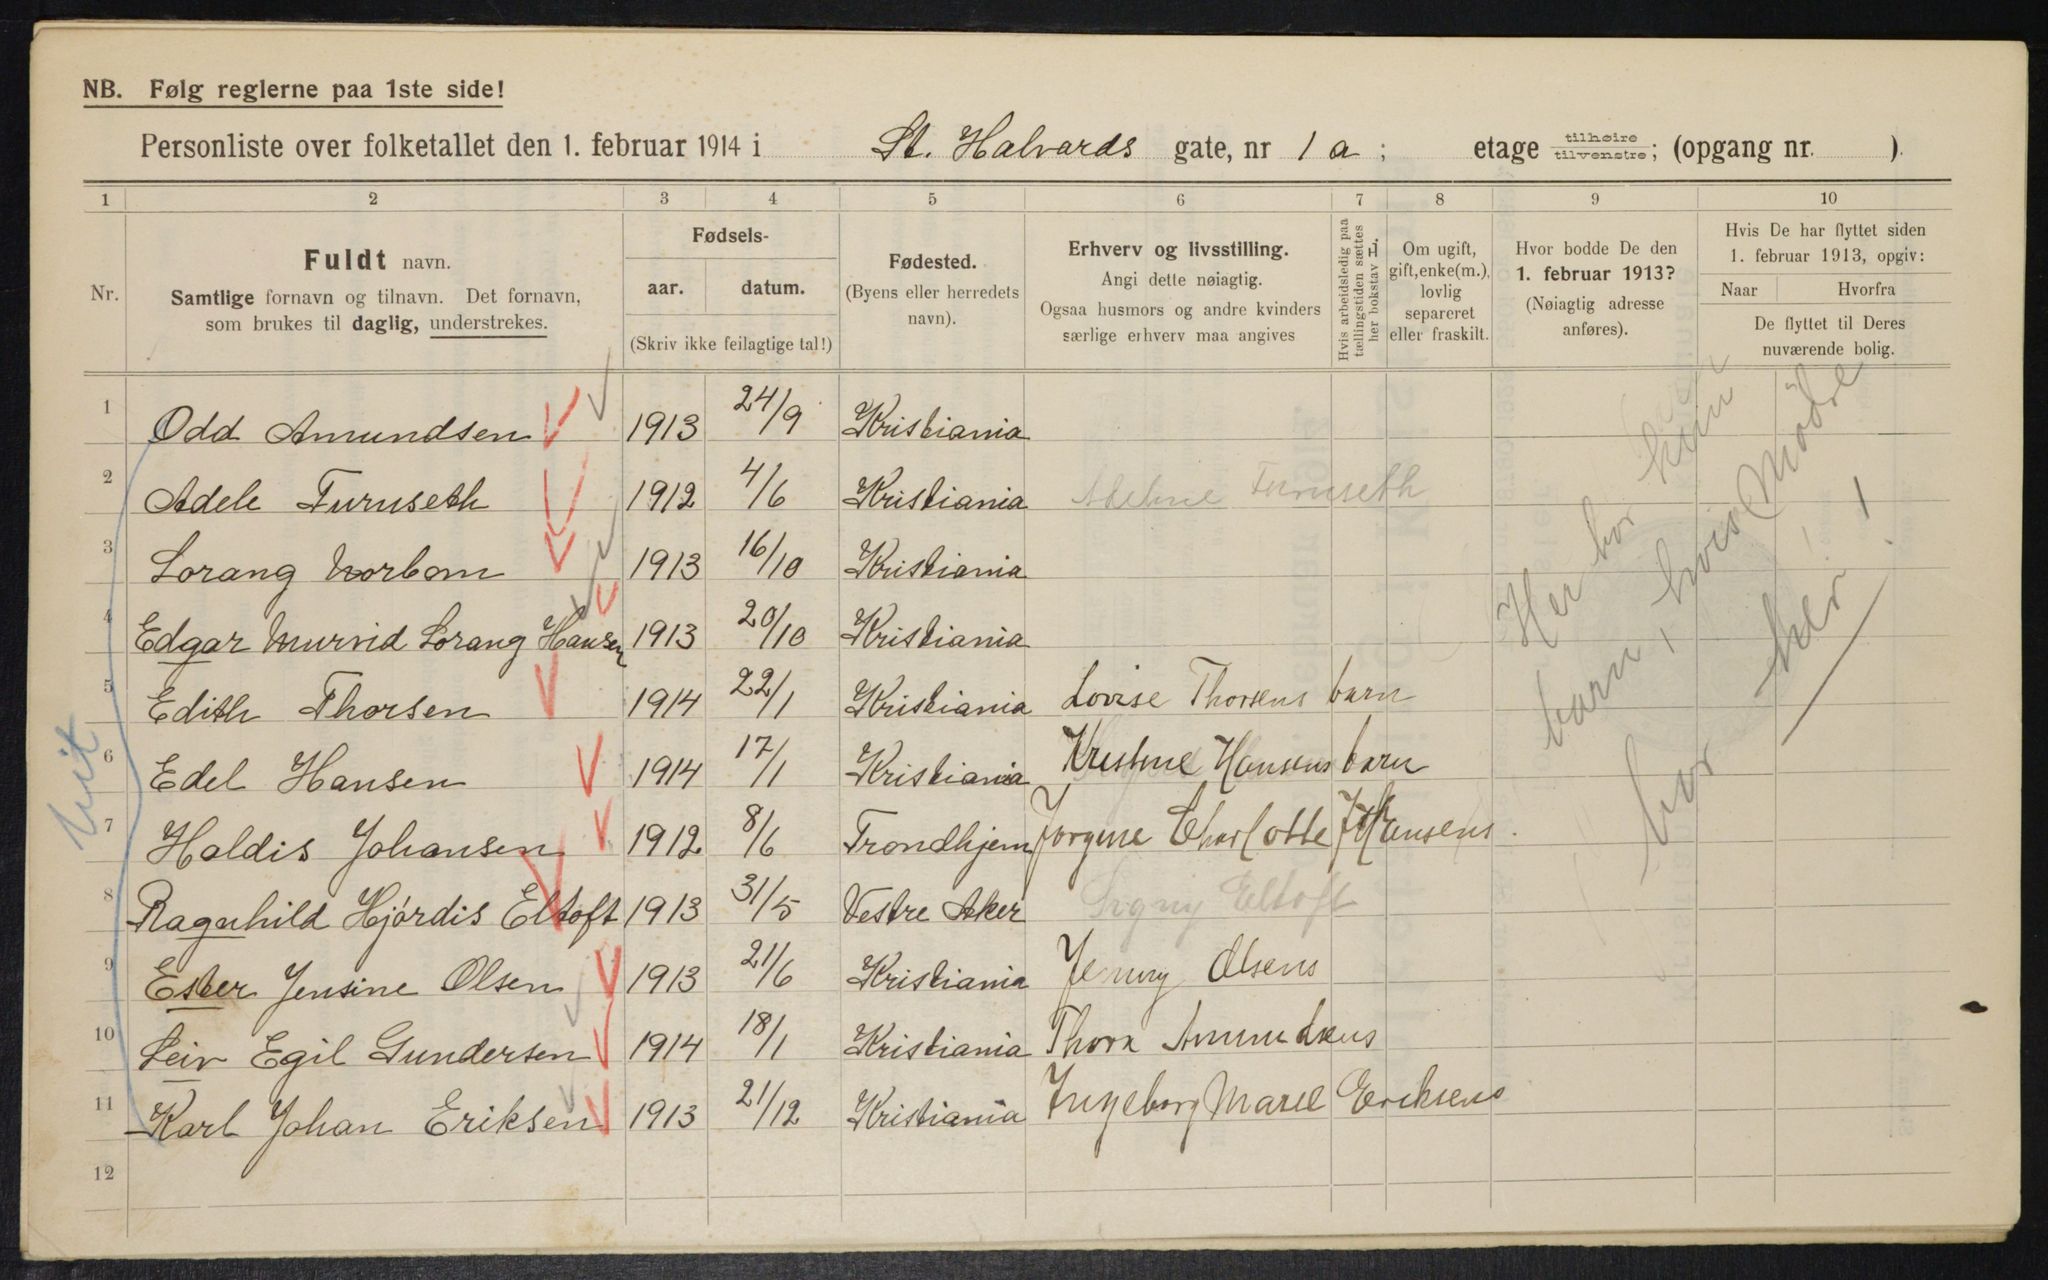 NB. Følg reglerne paa 1ste side!
Personliste over folketallet den 1. februar 1914 i St. Halvards gate, nr 1 a; etage tilhøire tilvenstre; (opgang nr. ).
1 2 3 4 5 6 7 8 9 10
Nr.
Fuldt navn.
Samtlige fornavn og tilnavn. Det fornavn,
som brukes til daglig, understrekes.
Fødsels-
aar. datum.
(Skriv ikke feilagtige tal!)
Fødested.
(Byens eller herredets
navn).
Erhverv og livsstilling.
Angi dette nøiagtig.
Ogsaa husmors og andre kvinders
særlige erhverv maa angives
Hvis arbeidsledig paa
tællingstiden sættes
her bokstav L.
Om ugift,
gift, enke(m.),
lovlig
separeret
eller fraskilt.
Hvor bodde De den
1. februar 1913?
(Nøiagtig adresse
anføres).
Hvis De har flyttet siden
1. februar 1913, opgiv:
Naar Hvorfra
De flyttet til Deres
nuværende bolig.
1 Odd Amundsen 1913 24/9 Kristiania
2 Adele Furuseth 1912 4/6 Kristiania Adeline Furuseth
3 Lorang Norbom 1913 16/10 Kristiania
4 Edgar Murvid Lorang Hansen 1913 20/10 Kristiania
5 Edith Thorsen 1914 22/1 Kristiania Lovise Thorsens barn
6 Edel Hansen 1914 17/1 Kristiania Kristine Hansens barn
7 Haldis Johansen 1912 8/6 Trondhjem Jorgine Charlotte Johansens
8 Ragnhild Hjórdis Eltoft 1913 31/5 Vestre Aker Signy Eltoft
9 Ester Jensine Olsen 1913 21/6 Kristiania Jenny Olsens
10 Leiv Egil Gundersen 1914 18/1 Kristiania Thora Amundsens
11 Karl Johan Eriksen 1913 21/12 Kristiania Ingeborg Marie Eriksens
12
Her bor kun
barn, hvis Mødre
bor her!